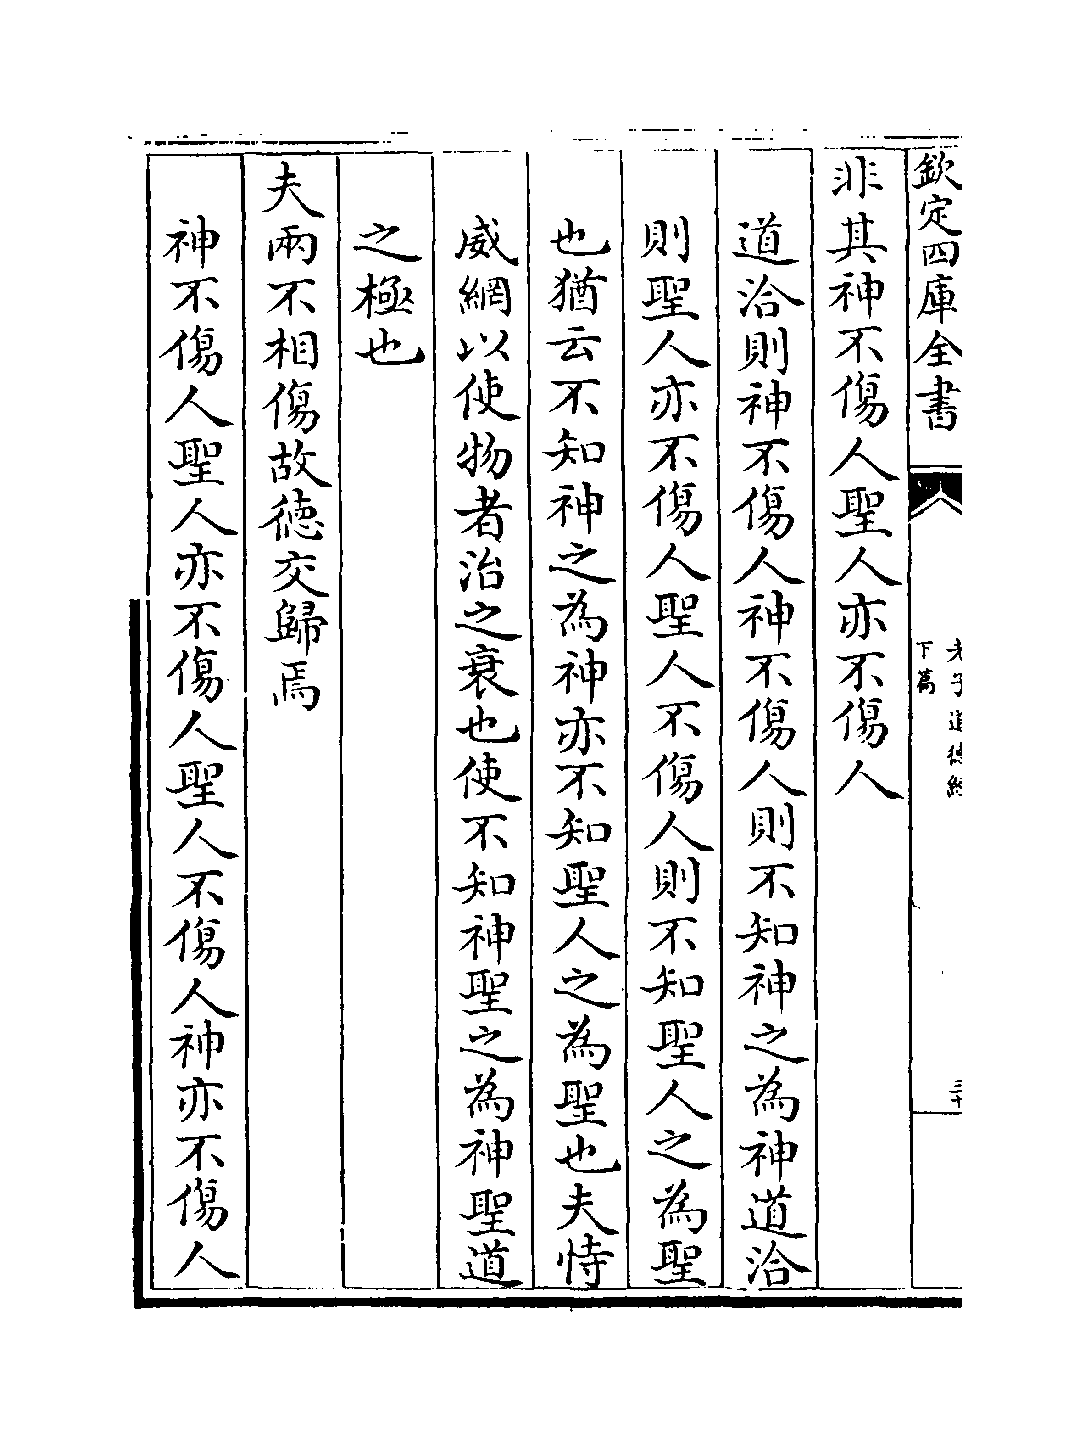 欽定四庫全書
老子道德經
下篇
三十
非其神不傷人聖人亦不傷人
道洽則神不傷人神不傷人則不知神之為神道洽
則聖人亦不傷人聖人不傷人則不知聖人之為聖
也猶云不知神之為神亦不知聖人之為聖也夫恃
威網以使物者治之衰也使不知神聖之為神聖道
之極也
夫兩不相傷故德交歸焉
神不傷人聖人亦不傷人聖人不傷人神亦不傷人